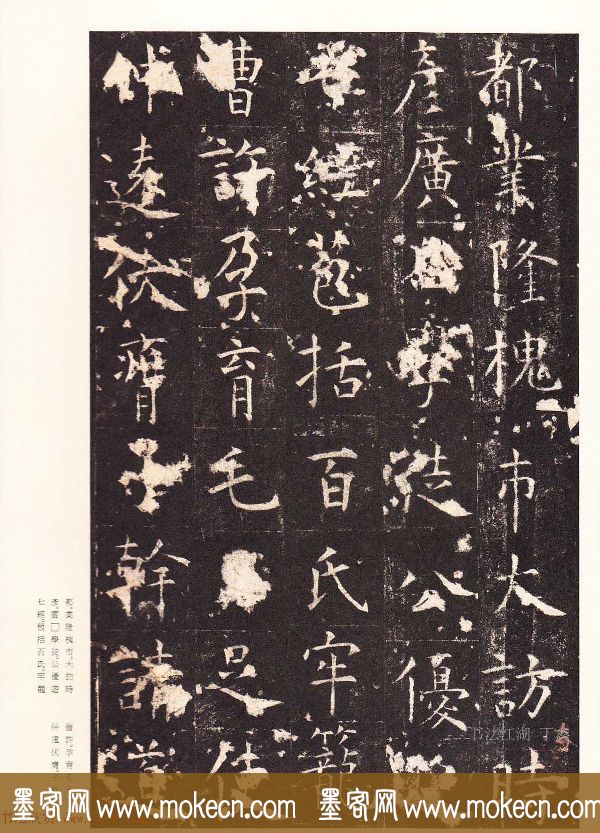 都業隆槐市大訪時
彥廣學徒公優
經苞括百氏牢籠
曹許孕育毛
仲遠伏膺幹請
都業隆槐市大訪時
彥廣□學徒公優遊
七經苞括百氏牢籠
曹許孕育
仲遠伏膺
书法江湖
墨客网www.mokecn.com 墨客网www.mokecn.com